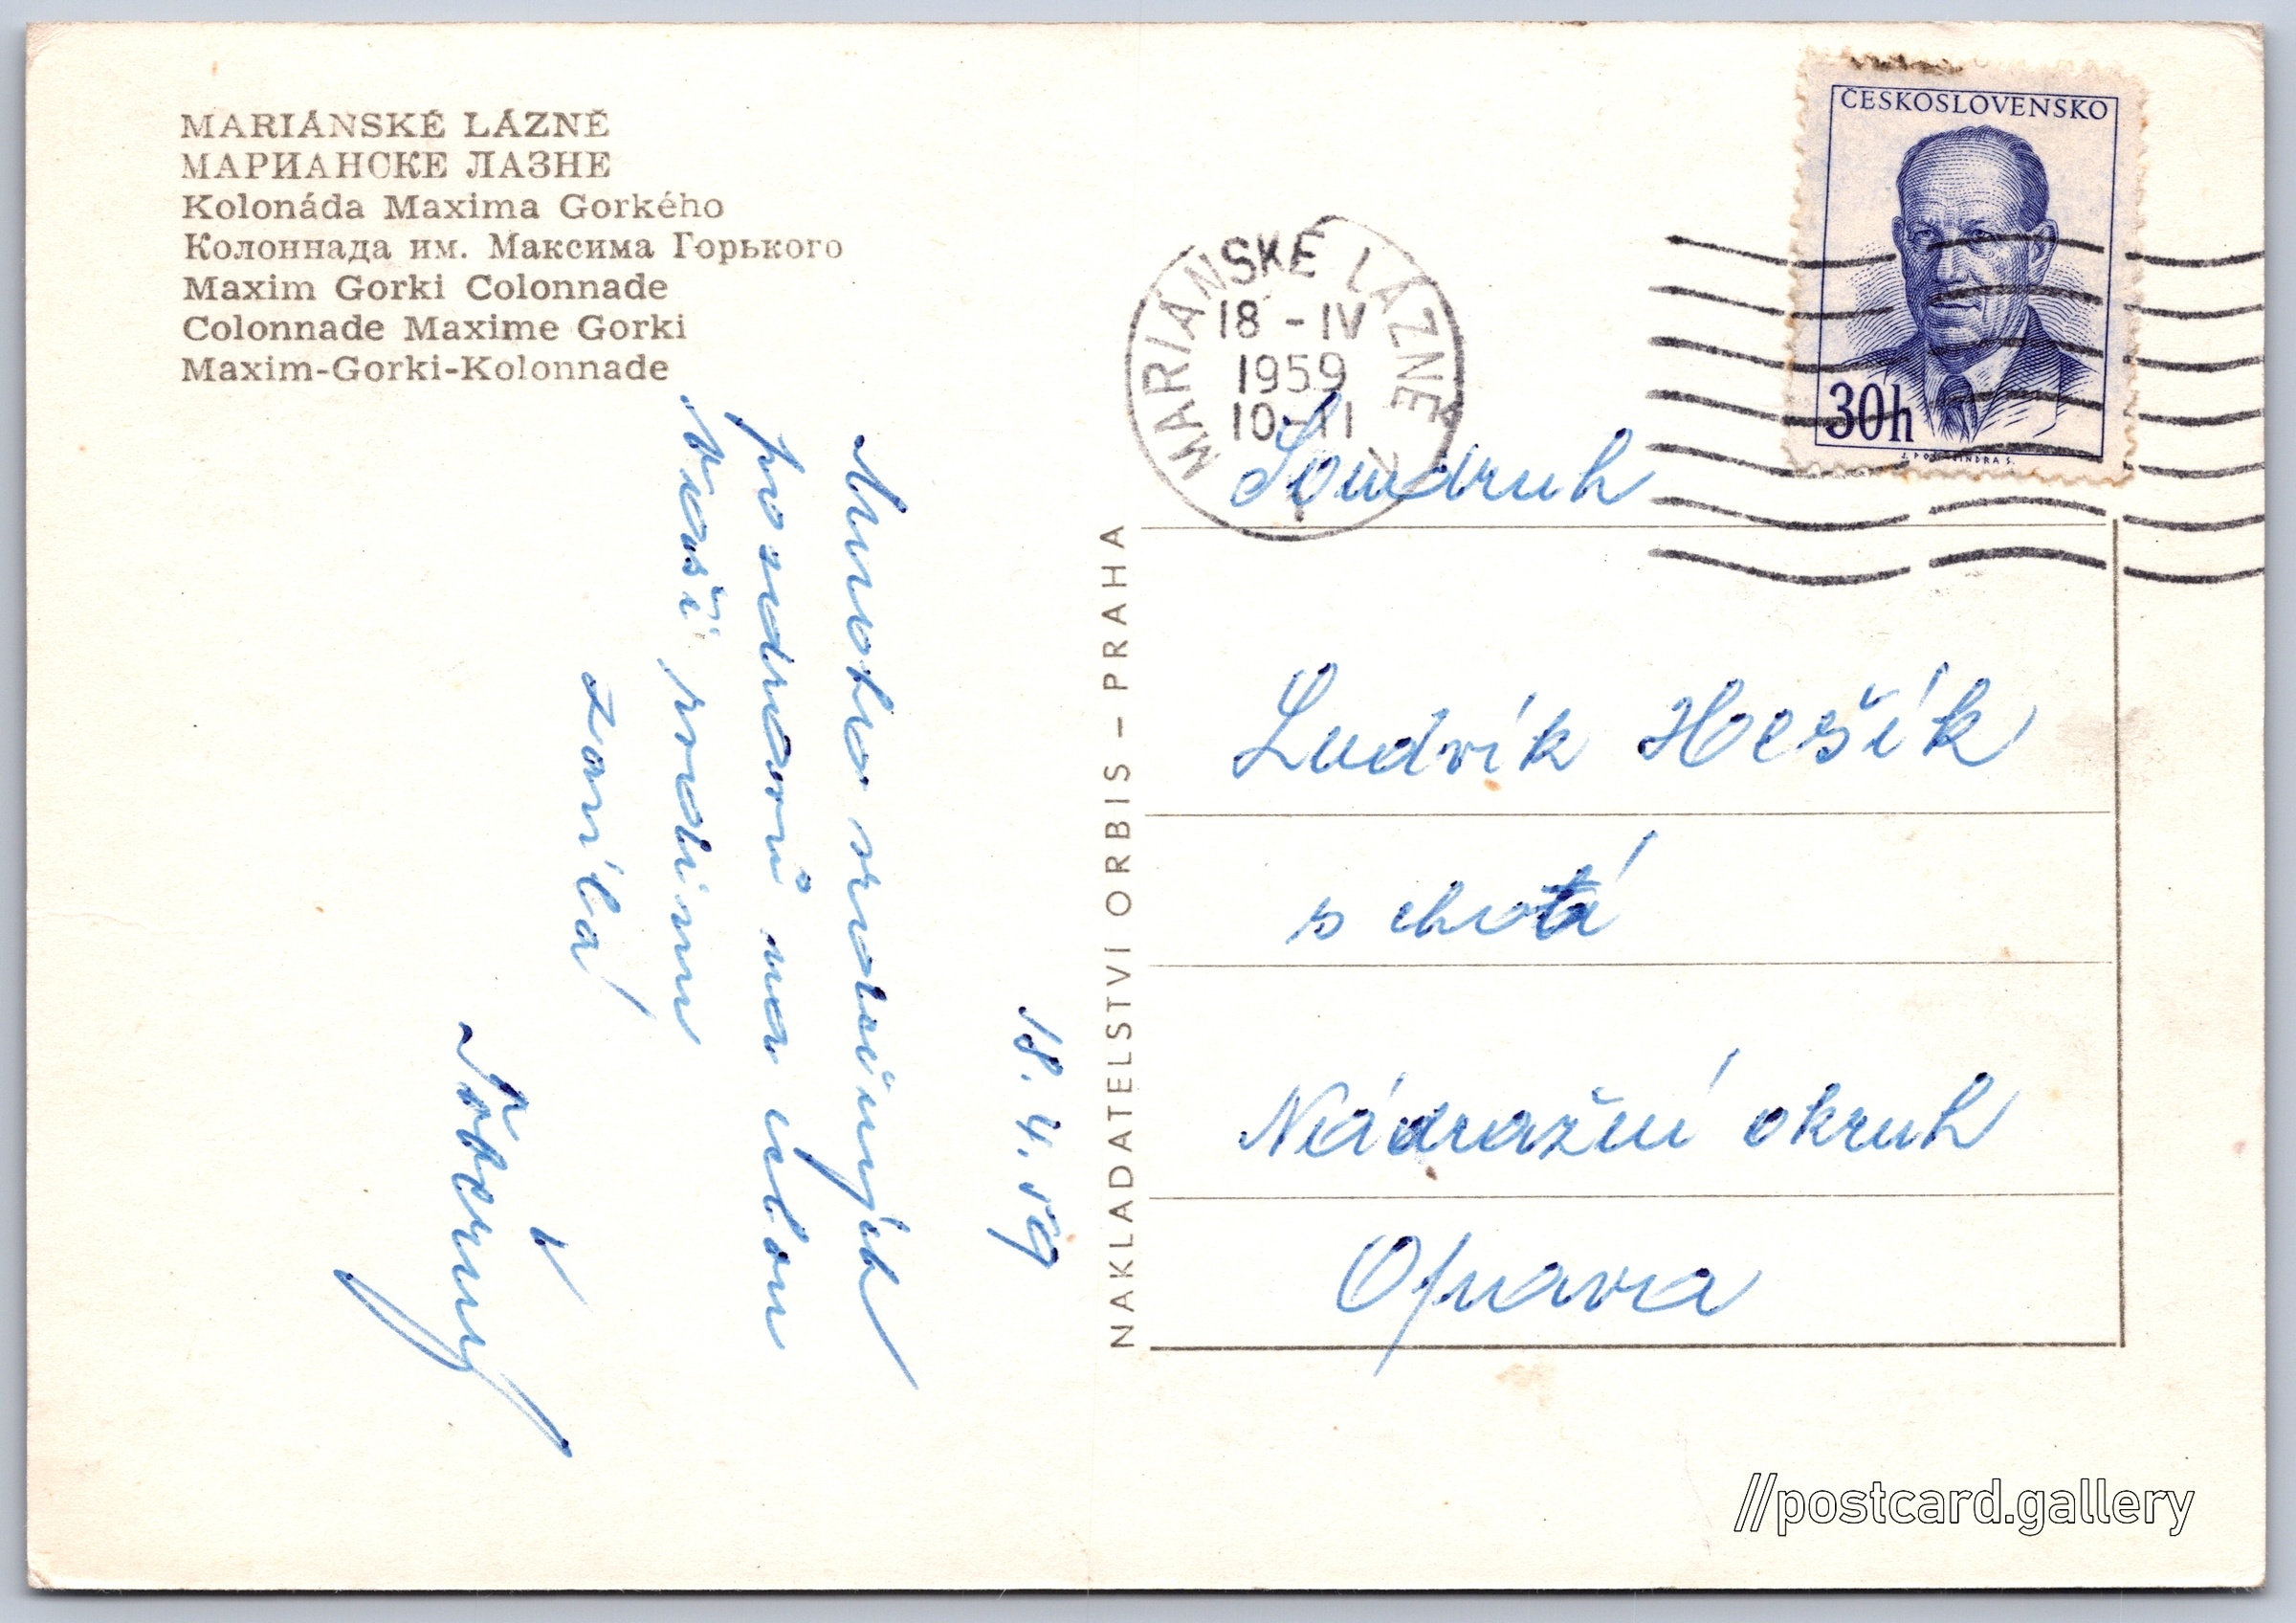 MARIÁNSKÉ LÁZNĚ
МАРИАНСКЕ ЛАЗНЕ
Kolonáda Maxima Gorkého
Колоннада им. Максима Горького
Maxim Gorki Colonnade
Colonnade Maxime Gorki
Maxim-Gorki-Kolonnade
18. 4. 59
Mnoho srdečných
pozdravů na celou
Vaši rodinu
zasílá
NAKLADATELSTVÍ ORBIS – PRAHA
ČESKOSLOVENSKO
30h
MARIÁNSKÉ LÁZNĚ
18 - IV
1959
10-11
Soudruh
Ludvík Hešík
s chotí
Nádražní okruh
Opava
//postcard.gallery